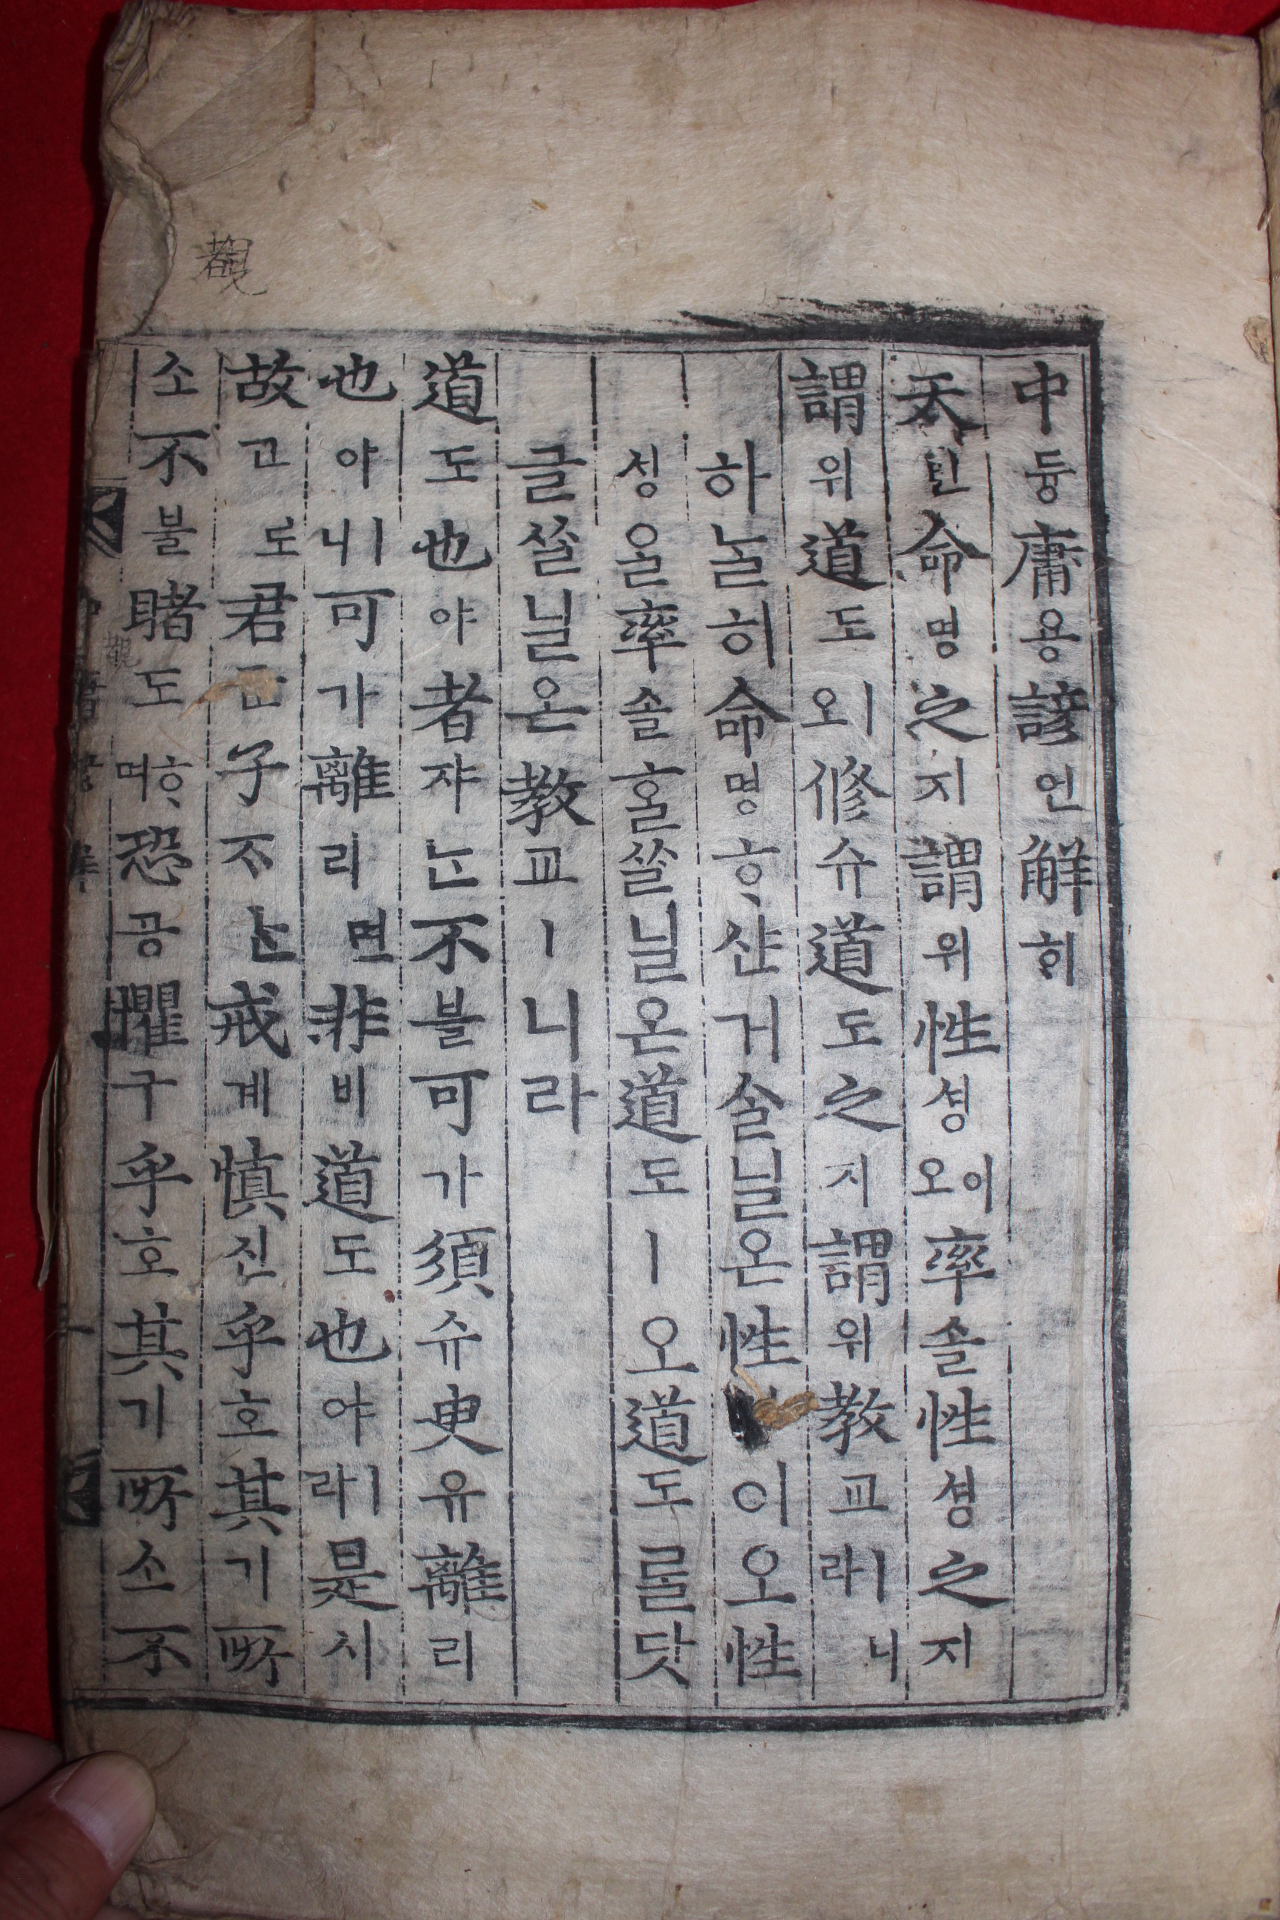 中듕庸용諺언解ᄒᆡ
天텬命명之지謂위性셩이오率솔性셩之지
謂위道도ㅣ오修슈道도之지謂위敎교ㅣ니라
하ᄂᆞᆯ히命명ᄒᆞ샨거ᄉᆞᆯ닐온性이오性
셩ᄋᆞᆯ率솔ᄒᆞᆯᄊᆞᆯ닐온道도ㅣ오道도ᄅᆞᆯ닷
글ᄊᆞᆯ닐온敎교ㅣ니라
道도也야者쟈ᄂᆞᆫ不블可가須슈臾유離리
也야ㅣ니可가離리면非비道도也야ㅣ라是시
故고도君子ᄌᆞᄂᆞᆫ戒계愼진乎호其기所
소不블睹도ᄒᆞ며恐공懼구乎호其기所소不